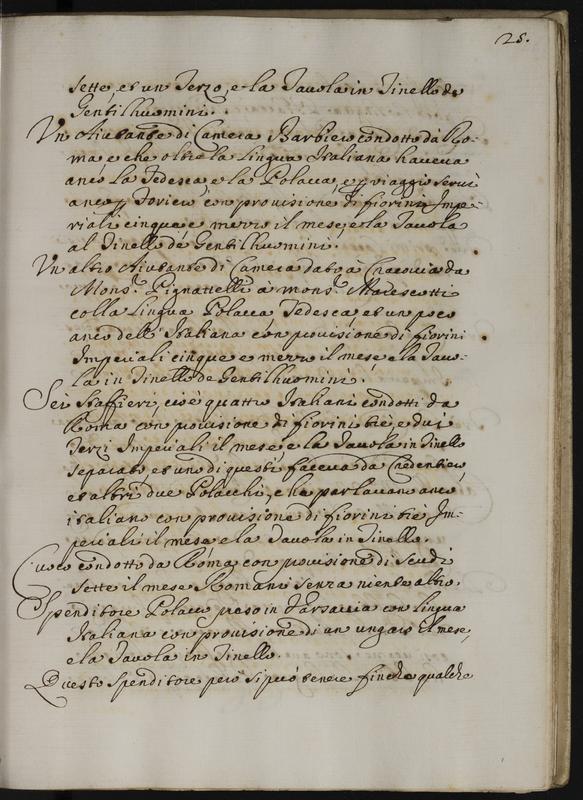 25.
sette, et un Terzo, e la Tavola in Tinello de
Gentilhuomini.
Un Aiutante di Camera Barbiero condotto da Ro-
ma e che oltre la lingua Italiana haveva
anco la Tedesca, e la Polacca, e p viaggio servi
anco p foriero, con provisione di fiorini Impe-
riali cinque e mezzo il mese, e la Tavola
al Tinello de Gentilhuomini.
Un altro Aiutante di Camera dato à Cracovia da
Mons.r Pignattelli à Mons.r Marescotti
colla lingua Polacca, Tedesca et un poco
anco dell' Italiana con provisione di fiorini
Imperiali cinque e mezzo il mese, e la Tavo-
la in Tinello de Gentilhuomini.
Sei Staffieri, cioè quattro Italiani condotti da
Roma con provisione di fiorini trè, e dui
Terzi Imperiali il mese, e la Tavola in Tinello
separato et uno di questi faceva da Credentiero,
et altri due Polacchi, che parlavano anco
italiano con provisione di fiorini trè Im-
periali il mese e la Tavola in Tinello.
Cuoco condotto da Roma con provisione di scudi
sette il mese Romani senza niente altro.
Spenditore Polacco preso in Varsavia con lingua
Italiana con provisione di un ungaro il mese,
e la Tavola in Tinello.
Questo Spenditore però si può tenere finche qualche